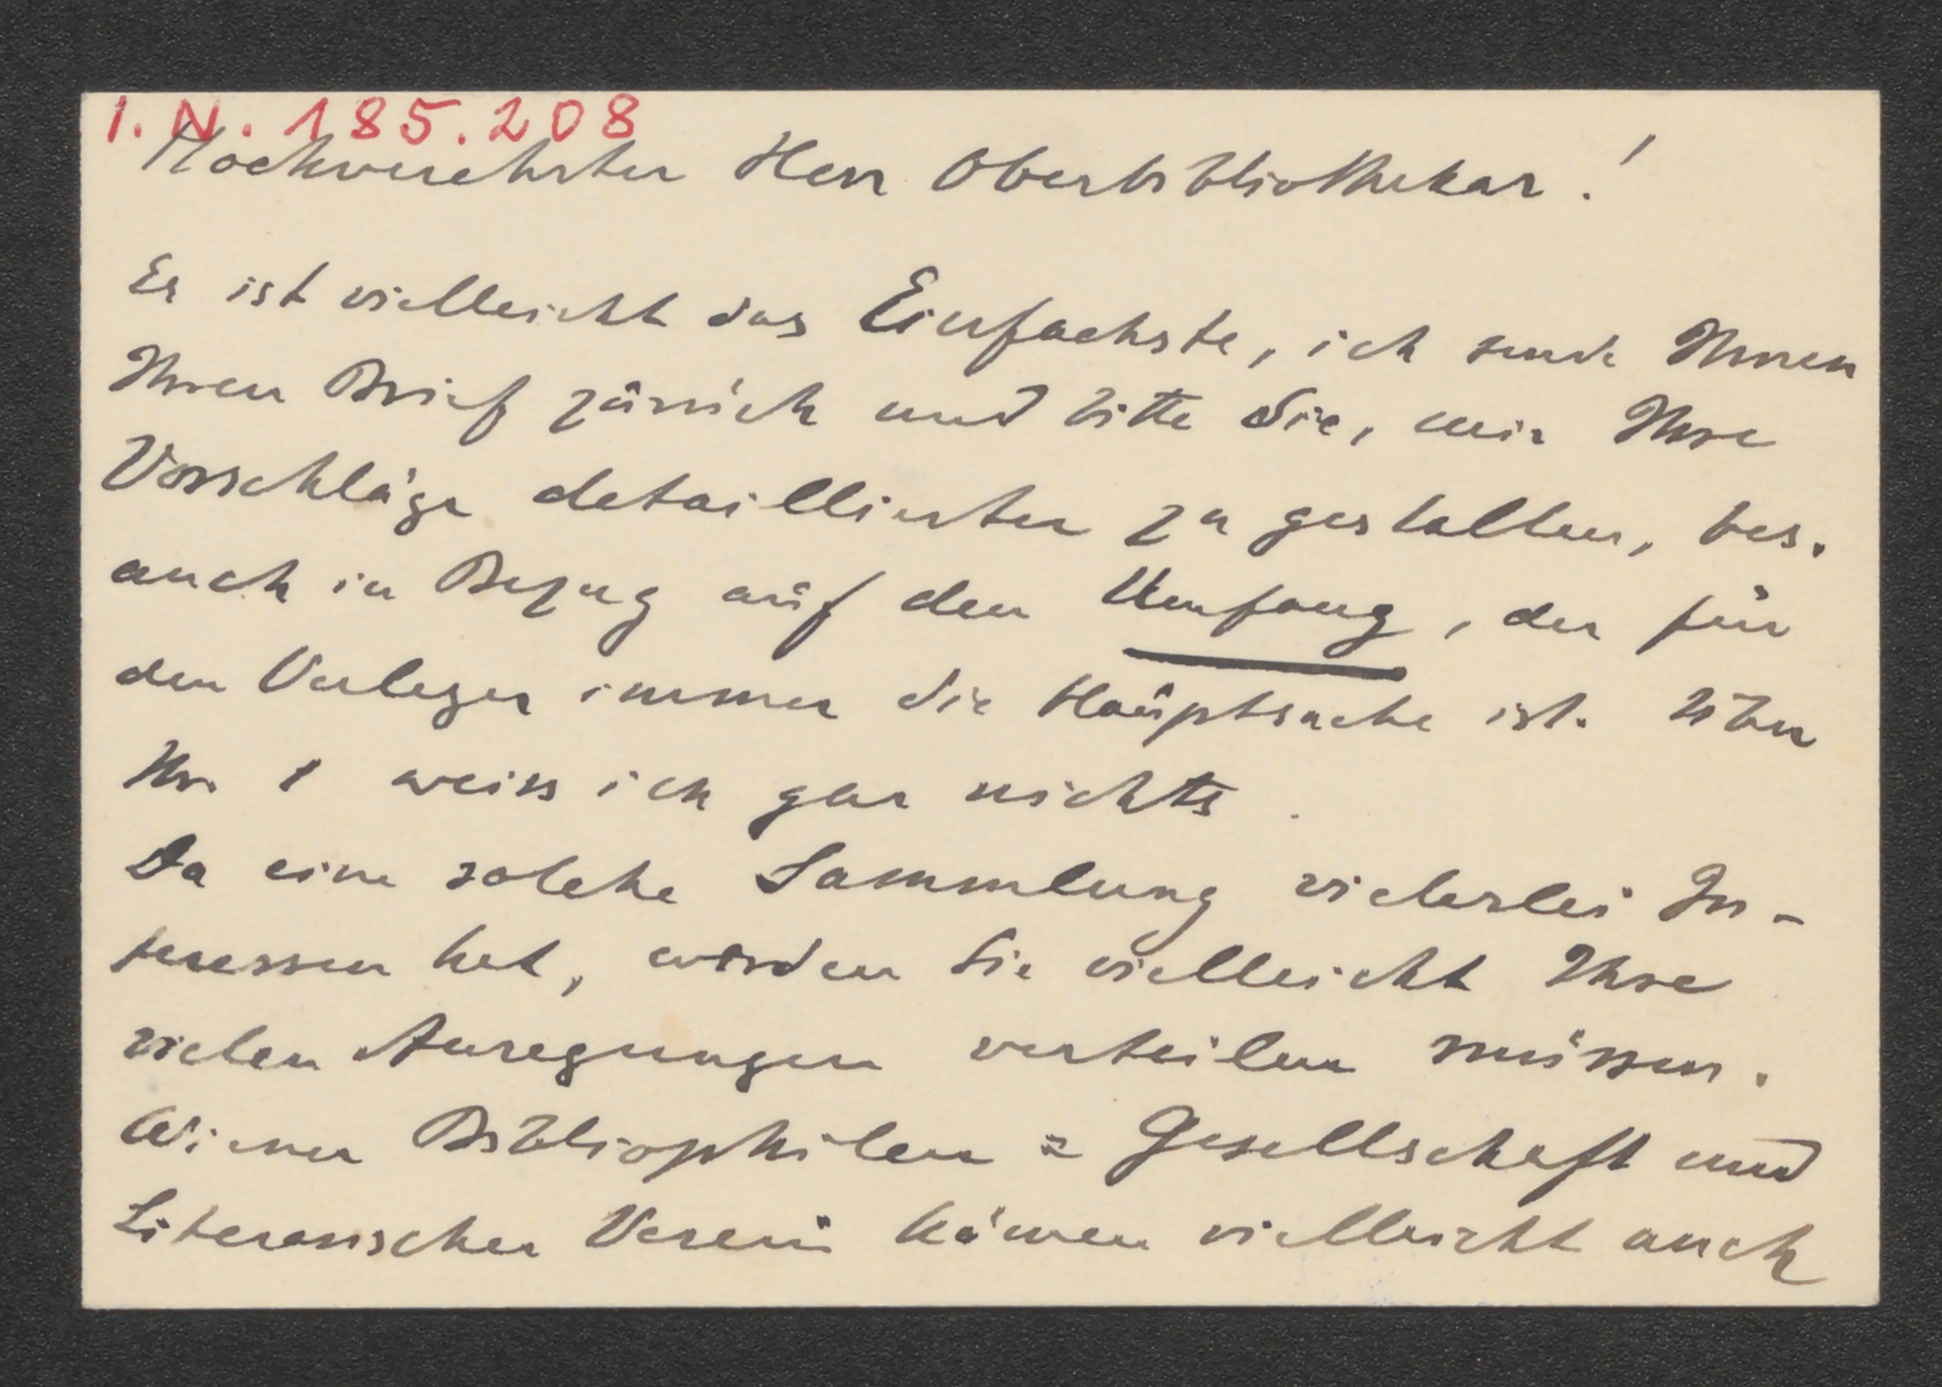 I.N. 185.208
Hochverehrter Herr Oberbibliothekar!
Es ist vielleicht das Einfachste, ich sende Ihnen
Ihren Brief zurück und bitte Sie, mir Ihre
Vorschläge detaillierter zu gestalten, bes.
auch in Bezug auf den Umfang, der für
den Verleger immer die Hauptsache ist. Über
Nr. 1 weiss ich gar nichts.
Da eine solche Sammlung vielerlei In-
teressen hat, werden Sie vielleicht Ihre
vielen Anregungen verteilen müssen.
Wiener Bibliophilen=Gesellschaft und
Literarischer Verein kämen vielleicht auch